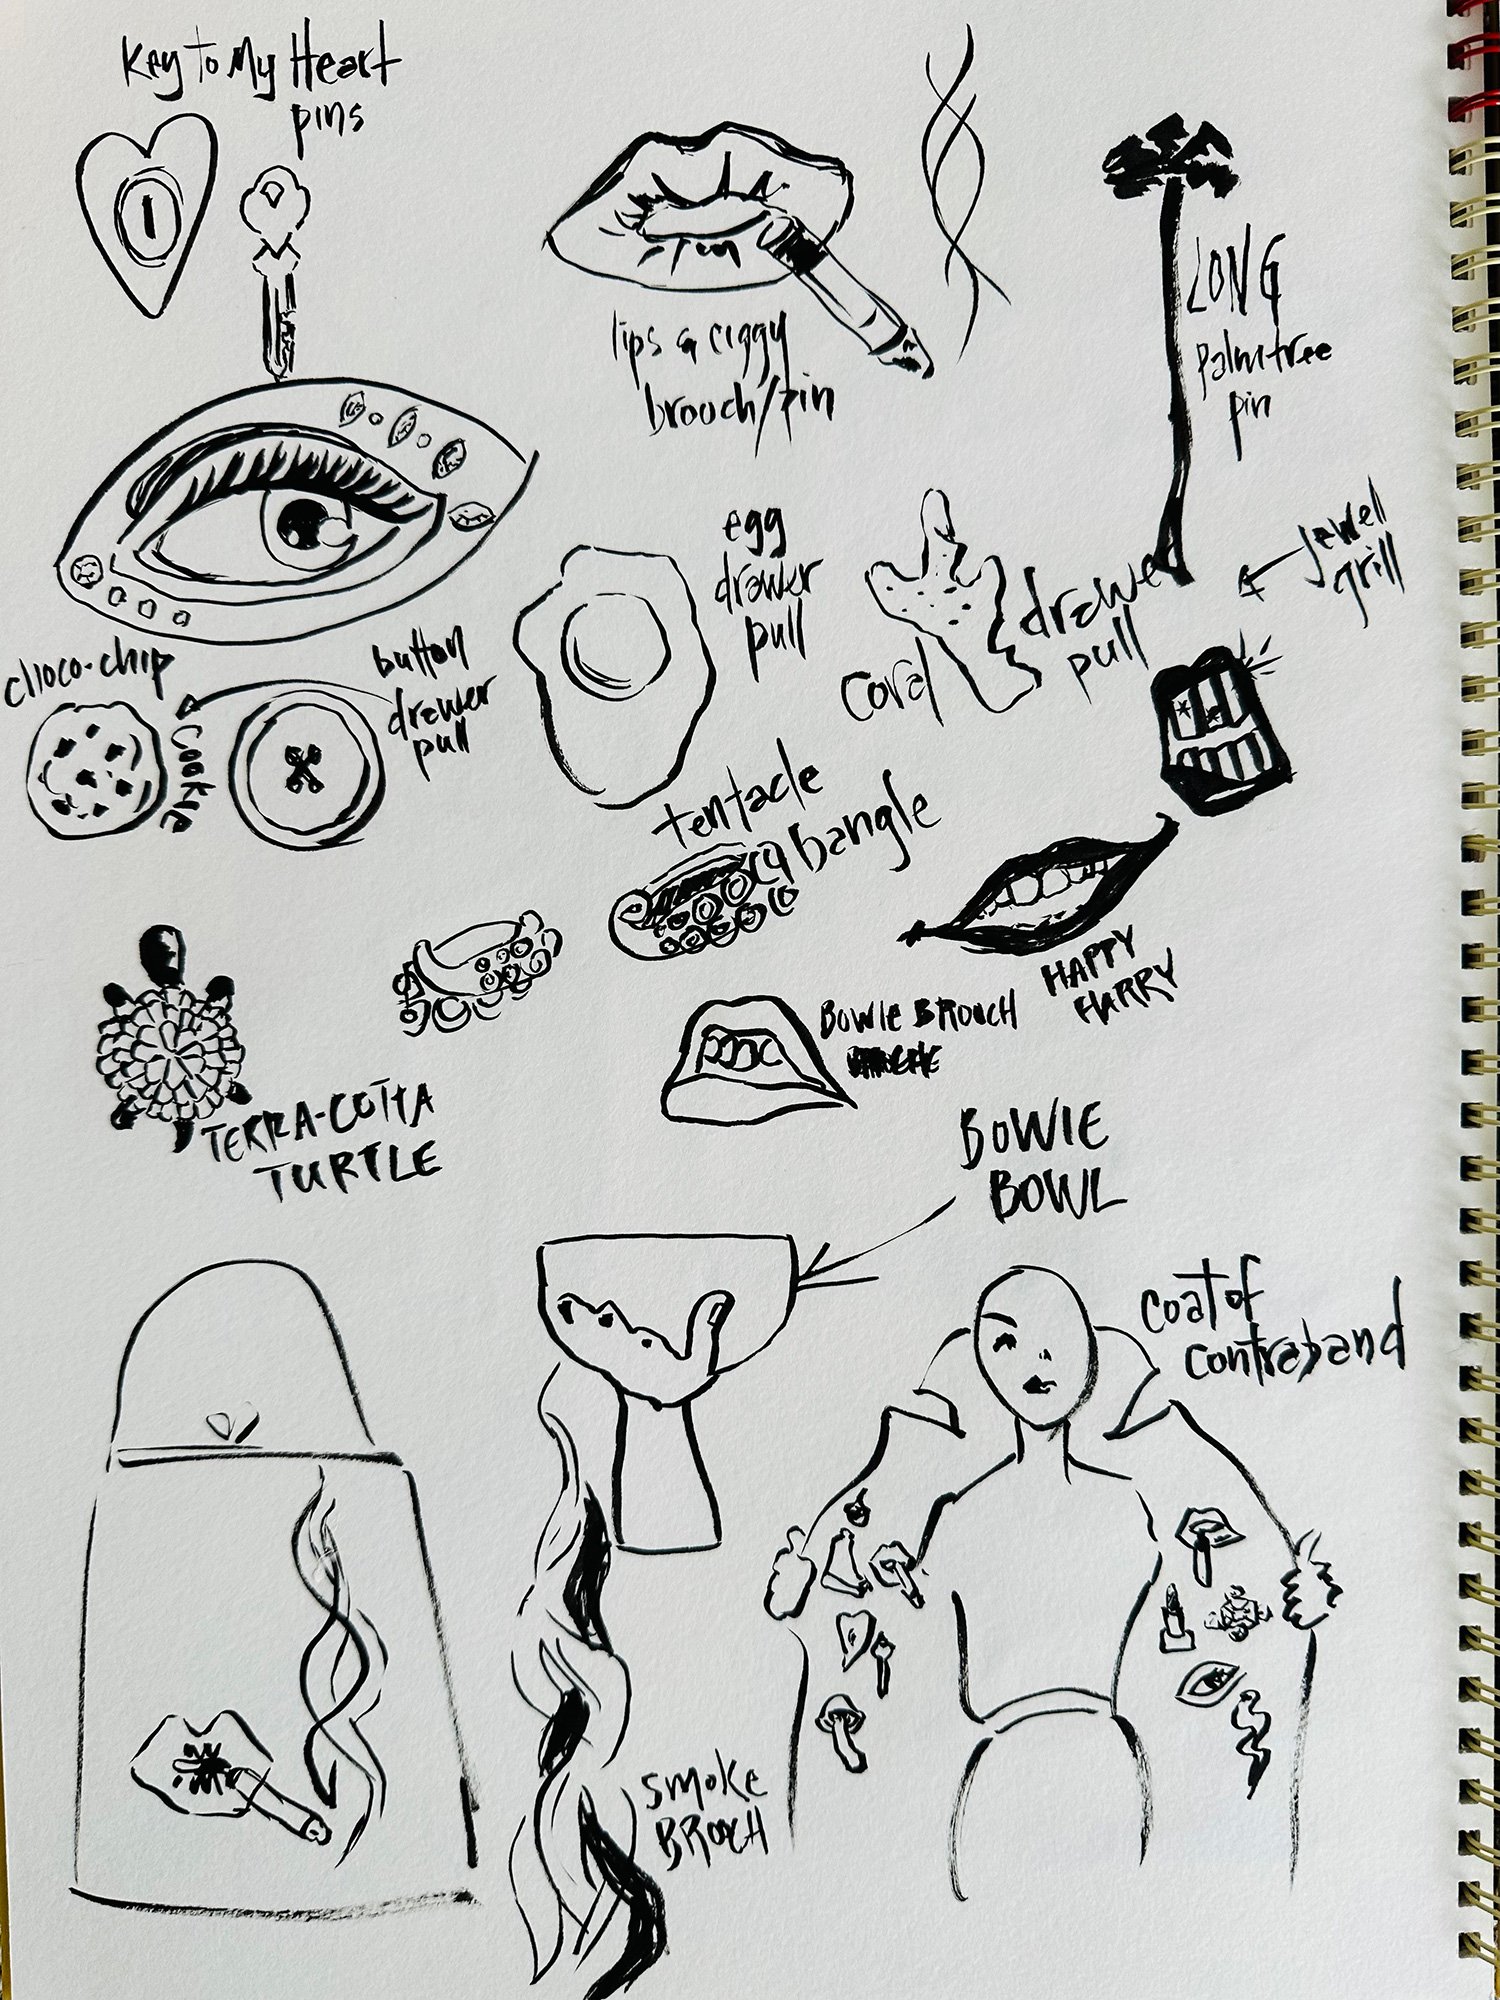 Key to My Heart
pins
lips & ciggy
brooch/pin
LONG
palmtree
pin
egg
drawer
pull
coral
drawer
pull
Jewel
grill
choco-chip
cookie
button
drawer
pull
tentacle
bangle
HAPPY
HARRY
BOWIE BROOCH
TERRA-COTTA
TURTLE
BOWIE
BOWL
coat of
contraband
smoke
BROOCH